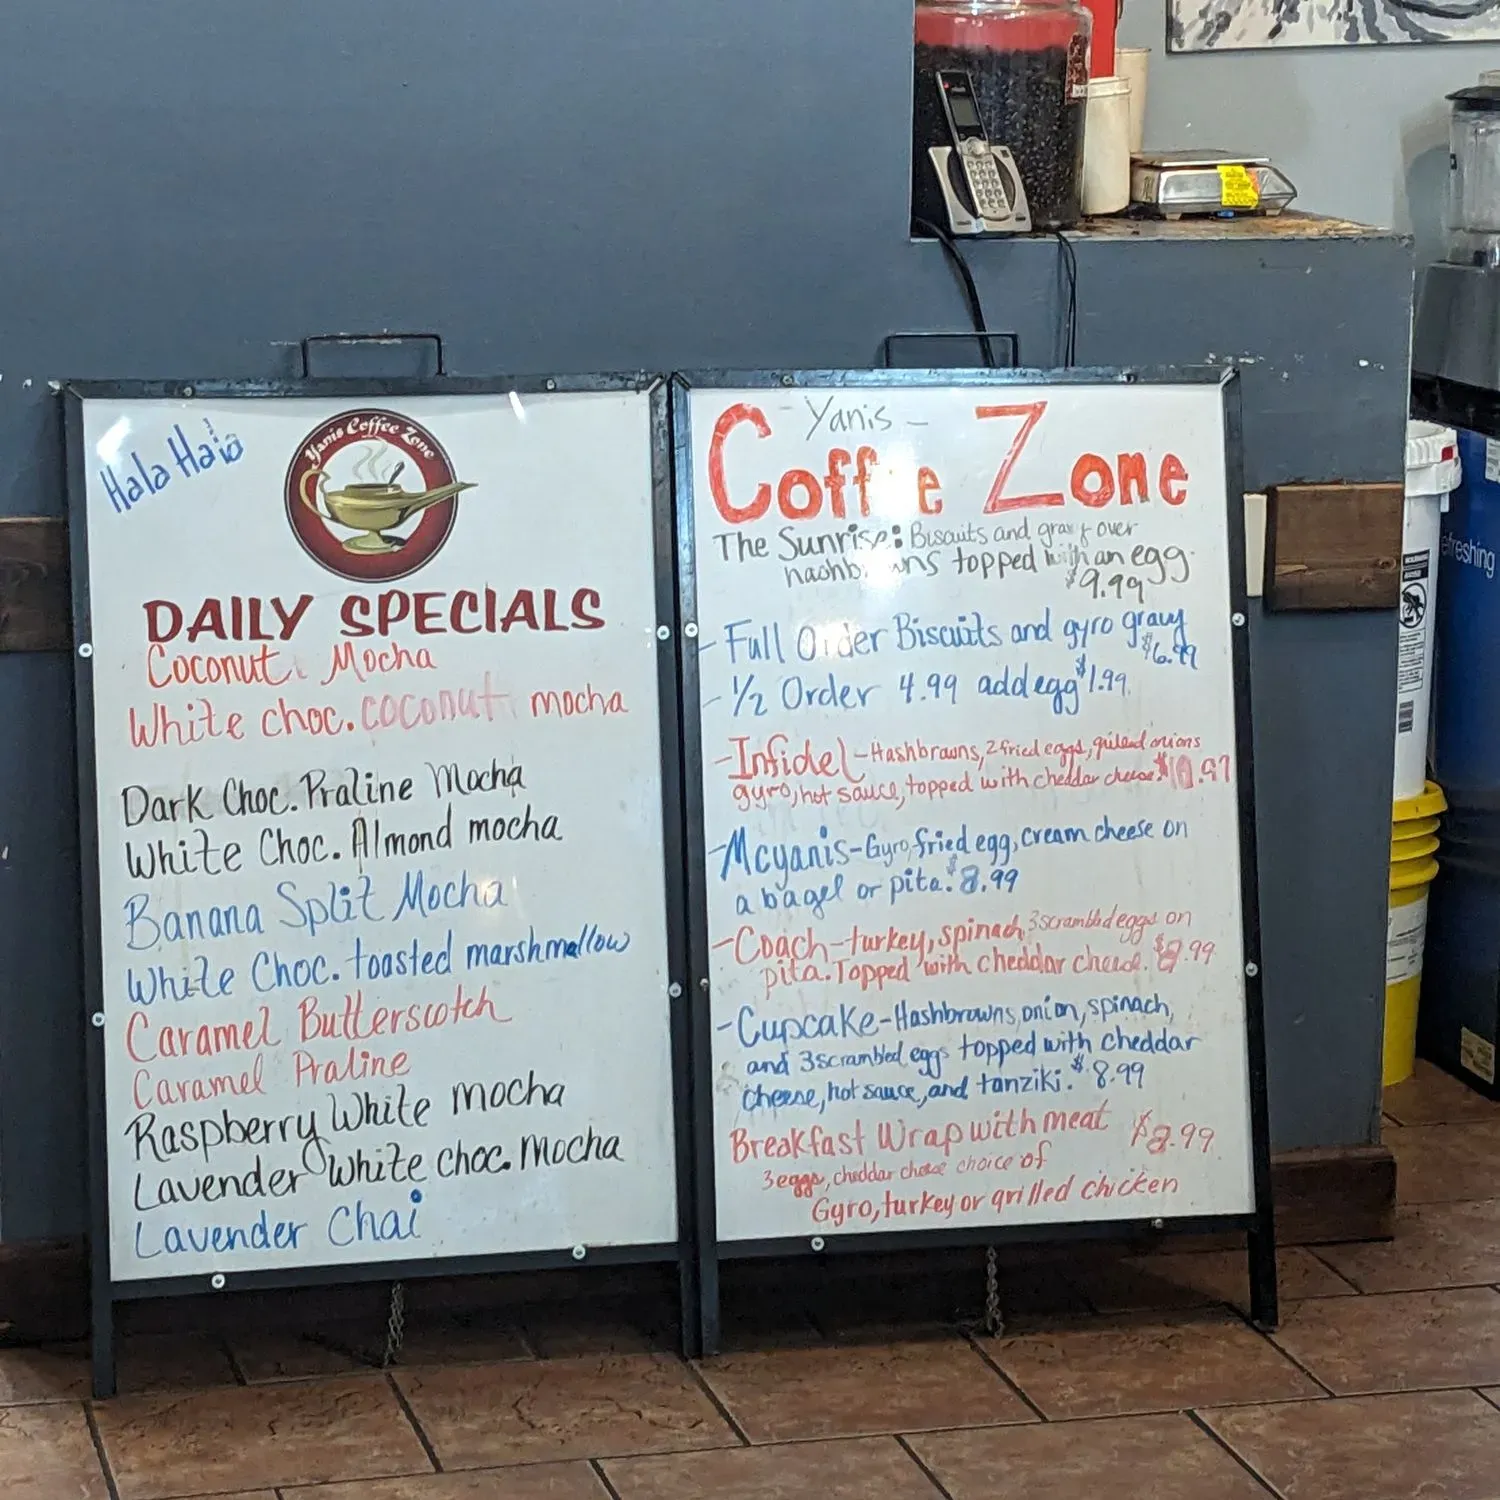 Hala Hala
Yanis Coffee Zone
DAILY SPECIALS
Coconut Mocha
White choc. coconut mocha
Dark Choc. Praline Mocha
White Choc. Almond mocha
Banana Split Mocha
White Choc. toasted marshmallow
Caramel Butterscotch
Caramel Praline
Raspberry White mocha
Lavender White choc. Mocha
Lavender Chai
- Yanis -
Coffee Zone
The Sunrise: Biscuits and gravy over
hashbrowns topped with an egg.
$9.99
- Full Order Biscuits and gyro gravy
$6.99
- 1/2 Order 4.99 add egg $1.99
- Infidel - Hashbrowns, 2 fried eggs, grilled onions
gyro, hot sauce, topped with cheddar cheese $10.97
- Mcyanis - Gyro, fried egg, cream cheese on
a bagel or pita. $8.99
- Coach - turkey, spinach, 3 scrambled eggs on
pita. Topped with cheddar cheese. .99
- Cupcake - Hashbrowns, onion, spinach,
and 3 scrambled eggs topped with cheddar
cheese, hot sauce, and tanziki. $8.99
Breakfast Wrap with meat $8.99
3 eggs, cheddar cheese choice of
Gyro, turkey or grilled chicken
efreshing